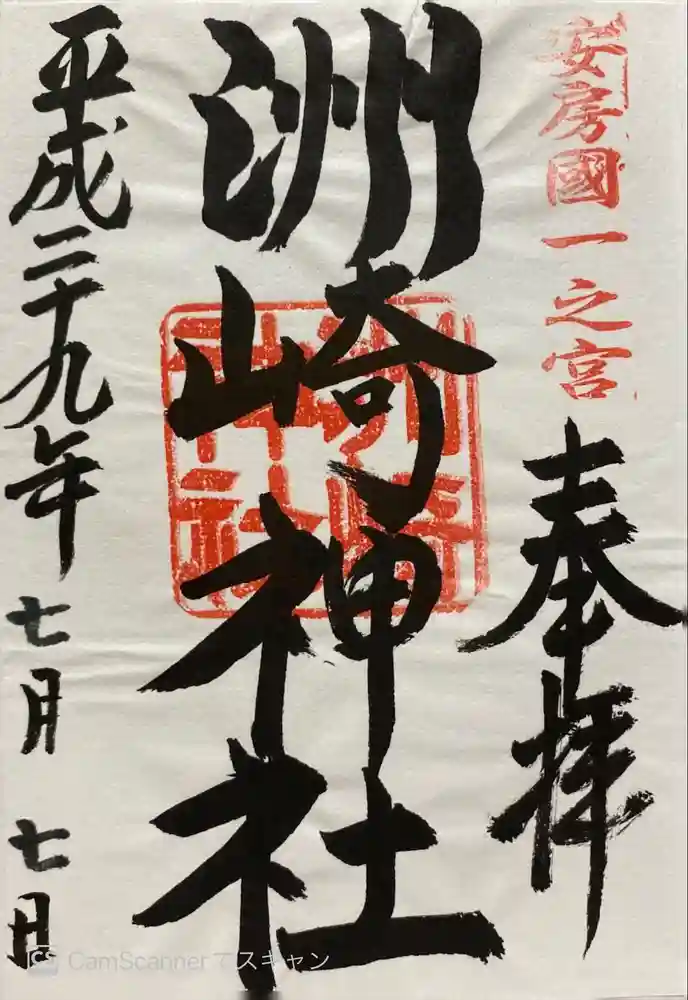 安房國一之宮
奉拝
洲崎神社
洲崎神社
平成二十九年七月七日
CamScannerでスキャン